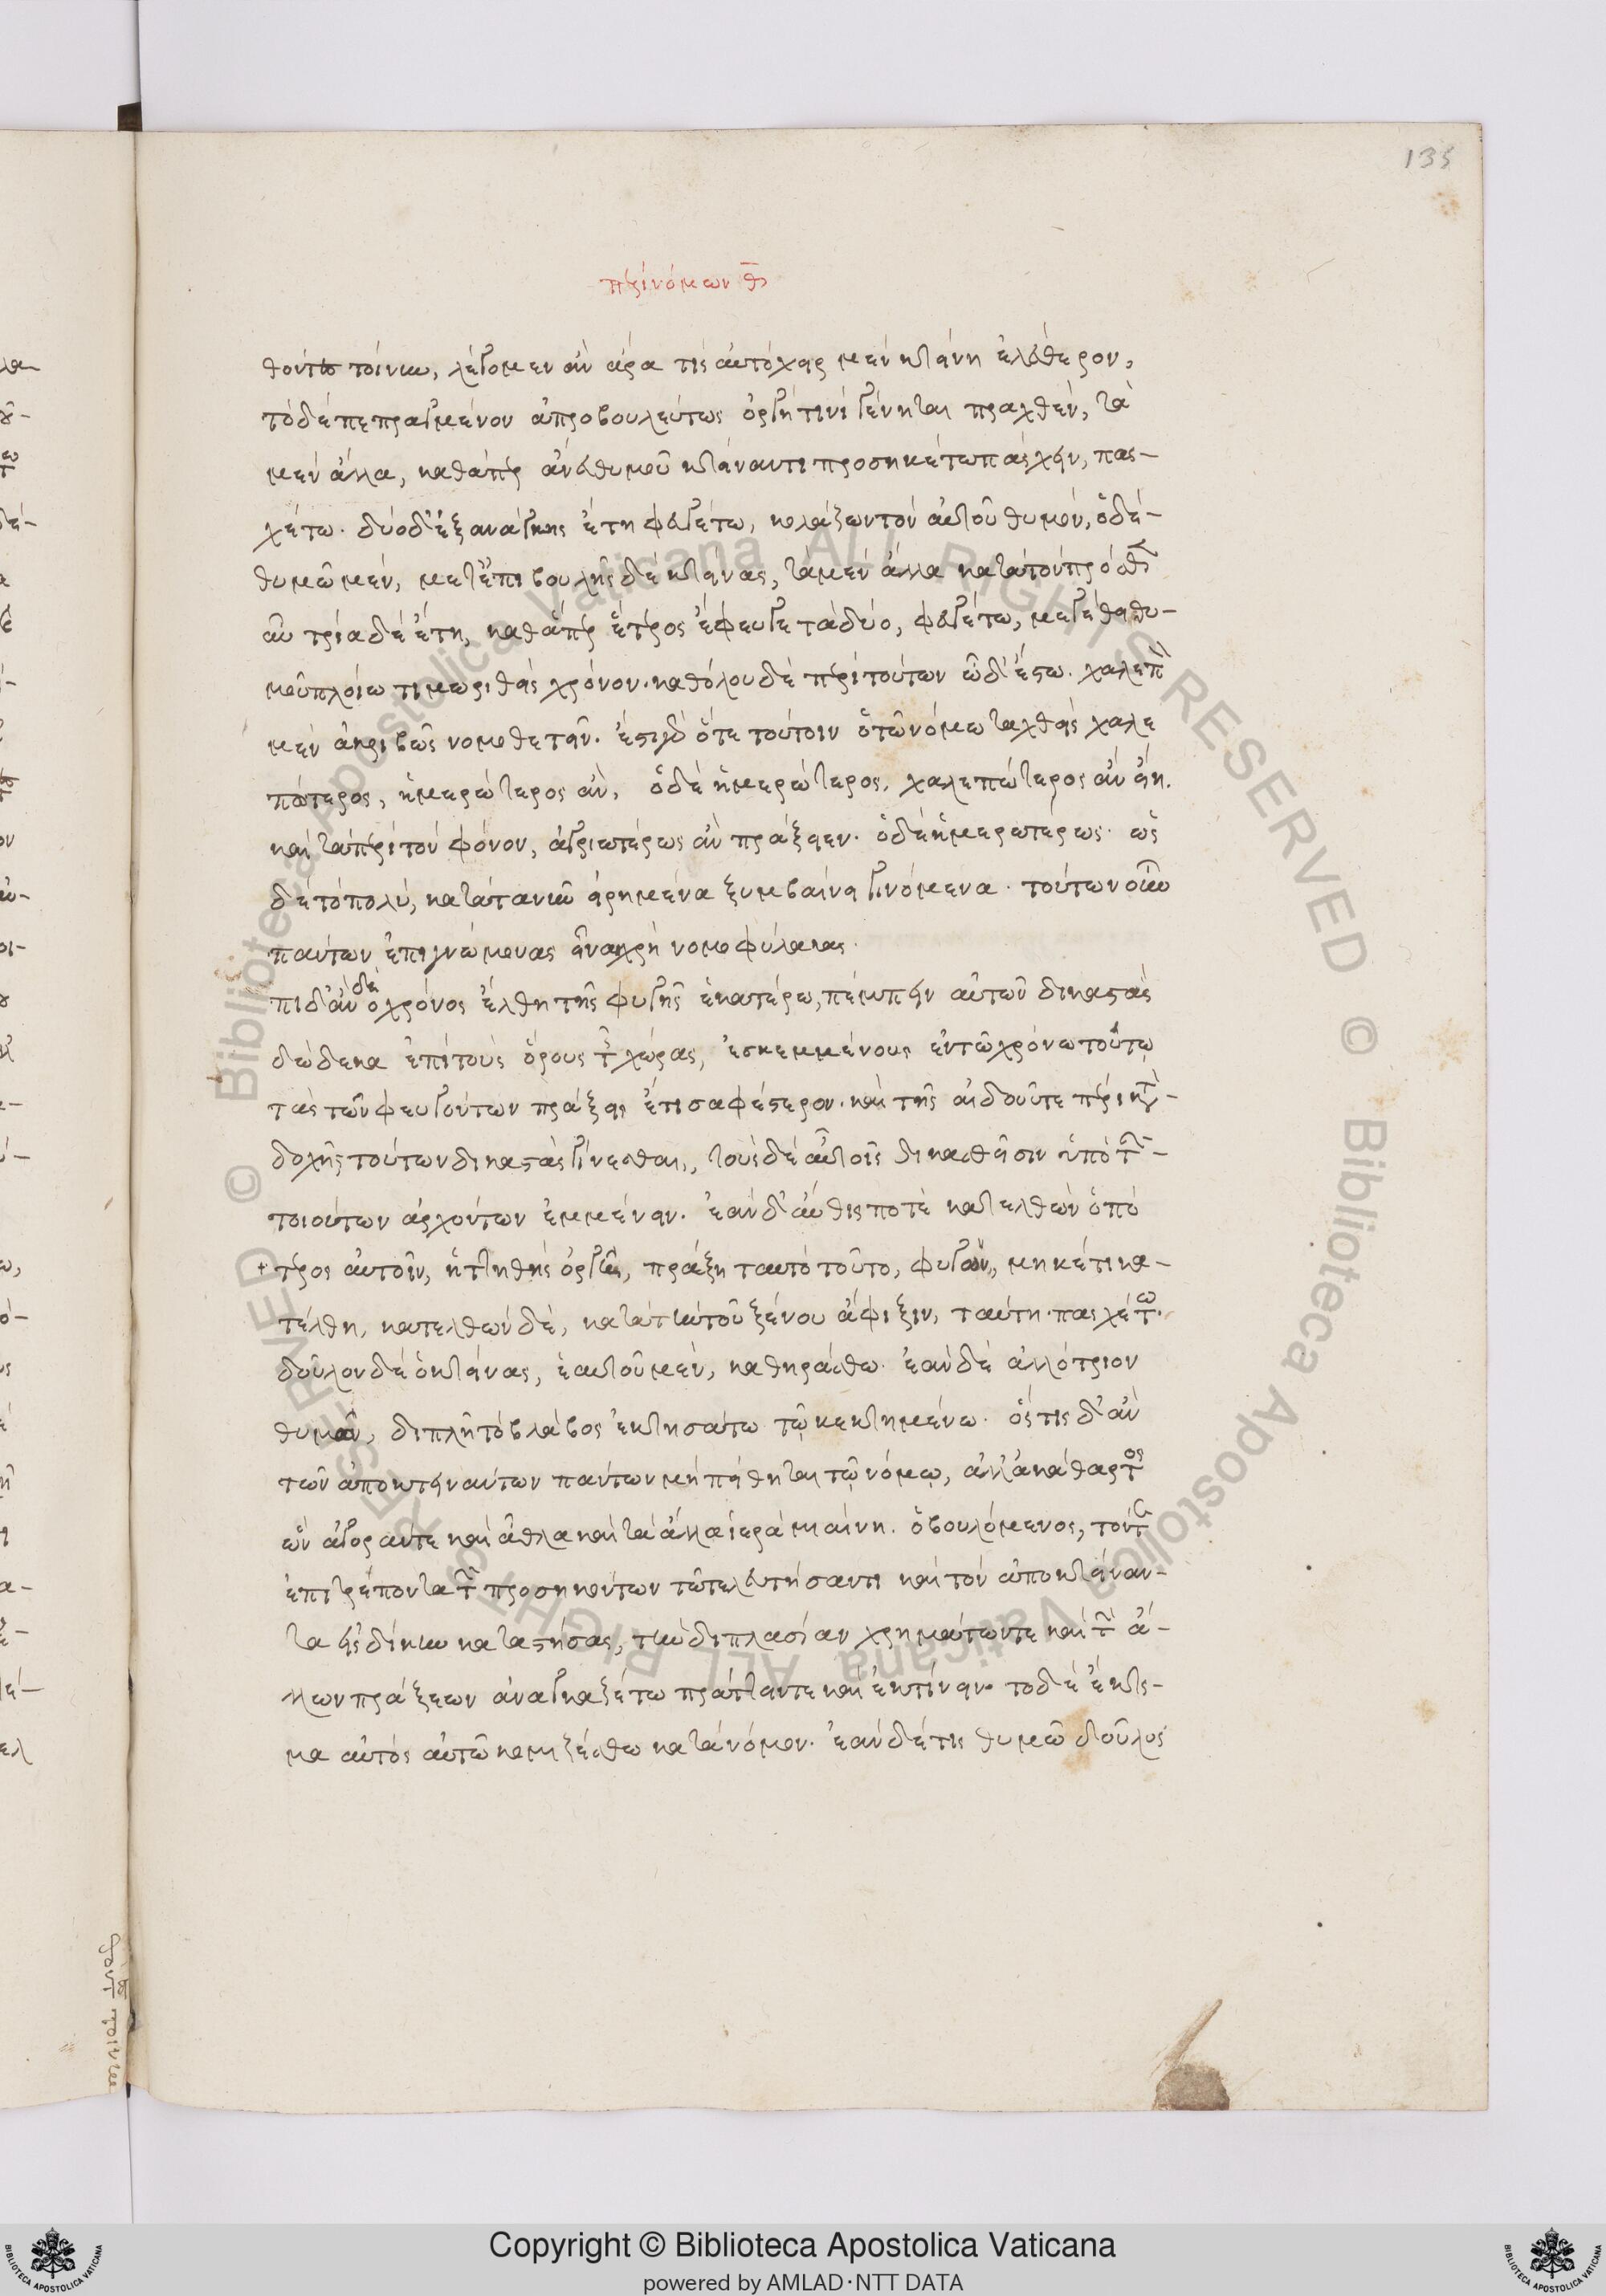 135
περὶ νόμων θ
θόντα τοίνυν, λέγομεν ἂν ἄρα τις αὐτόχειρ μὲν κτάνη ἐλεύθερον,
τὸ δὲ πεπραγμένον ἀπροβουλεύτως ὀργῆ τινὶ γένηται πραχθὲν, τὰ
μὲν ἄλλα, καθάπερ ἄνευ θυμοῦ κτάναντι προσηκέτω πάσχειν, πασ-
χέτω. δύο δ' ἐξ ἀνάγκης ἔτη φευγέτω, κολάζων τὸν αὑτοῦ θυμόν, ὁ δὲ
θυμῶ μὲν, μετ' ἐπιβουλῆς δὲ κτείνας, τὰ μὲν ἄλλα κατὰ τὸν πρόσθεν
αὖ τρία δὲ ἔτη, καθάπερ ἕτερος ἔφευγε τὰ δύο, φευγέτω, μεγέθει θυ-
μοῦ πλείω τιμωρηθεὶς χρόνον. καθόλου δὲ περὶ τούτων ὧδ' ἔστω. χαλεπὸν
μὲν ἀκριβῶς νομοθετεῖν. ἔστι γὰρ ὅτε τούτοιν ὁ τῶ νόμω ταχθεὶς χαλε
πώτερος, ἡμερώτερος ἂν, ὁ δὲ ἡμερώτερος, χαλεπώτερος ἂν εἴη.
καὶ τὰ περὶ τὸν φόνον, ἀγριωτέρως ἂν πράξειεν. ὁ δὲ ἡμερωτέρως. ὡς
δὲ τὸ πολὺ, κατὰ τὰ νῦν εἰρημένα ξυμβαίνει γινόμενα. τούτων οὖν
πάντων ἐπιγνώμονας εἶναι χρὴ νομοφύλακας.
πιδ' ἂν δὲ ὁ χρόνος ἔλθη τῆς φυγῆς ἑκατέρω, πέμπειν αὐτῶν δικαστὰς
δώδεκα ἐπὶ τοὺς ὅρους τῆς χώρας, ἐσκεμμένους ἐν τῶ χρόνω τούτω
τὰς τῶν φευγόντων πράξεις ἔτι σαφέστερον. καὶ τῆς αἰδοῦς τε πέρι καὶ κατα-
δοχῆς τούτων δικαστὰς γίνεσθαι, τοὺς δὲ αὖ τοῖς δικασθεῖσιν ὑπὸ τῶν
τοιούτων ἀρχόντων ἐμμένειν. ἐὰν δ' αὖθίς ποτε κατελθὼν ὁπό
τερος αὐτοῖν, ἡττηθεὶς ὀργῆς, πράξη ταυτὸ τοῦτο, φυγὼν, μηκέτι κα-
τέλθη, κατελθὼν δὲ, κατὰ τὴν τοῦ ξένου ἄφιξιν, ταύτη πασχέτω.
δοῦλον δὲ ὁ κτείνας, ἑαυτοῦ μὲν, καθηράσθω. ἐὰν δὲ ἀλλότριον
θυμῶ, διπλῆ τὸ βλάβος ἐκτησάτω τῶ κεκτημένω. ὅστις δ' ἂν
τῶν ἀποκτεινάντων πάντων μὴ πείθηται τῶ νόμω, ἀλλ' ἀκάθαρτος
ὢν ἀγοράν τε καὶ ἆθλα καὶ τὰ ἄλλα ἱερὰ μιαίνη. ὁ βουλόμενος, τόν τε
ἐπιτρέποντα τῶν προσηκόντων τῶ τελευτήσαντι καὶ τὸν ἀποκτείναν-
τα εἰς δίκην καταστήσας, τὴν διπλασίαν χρημάτων τε καὶ τῶν ἄλ-
λων πράξεων ἀναγκαζέτω πράττειν τε καὶ ἐκτίνειν. τὸ δὲ ἔκτις-
μα αὐτὸς αὑτῶ κομιζέσθω κατὰ νόμον. ἐὰν δέ τις θυμῶ δοῦλος
Copyright © Biblioteca Apostolica Vaticana
powered by AMLAD·NTT DATA